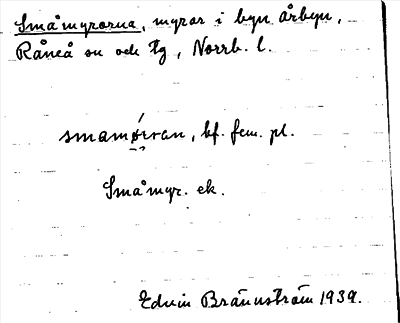 Småmyrorna, myror i byn Årbyn,
Råneå sn och tg, Norrb. l.
smamo̜rran, bf. fem. pl.
Småmyr. ek.
Edvin Brännström 1939.